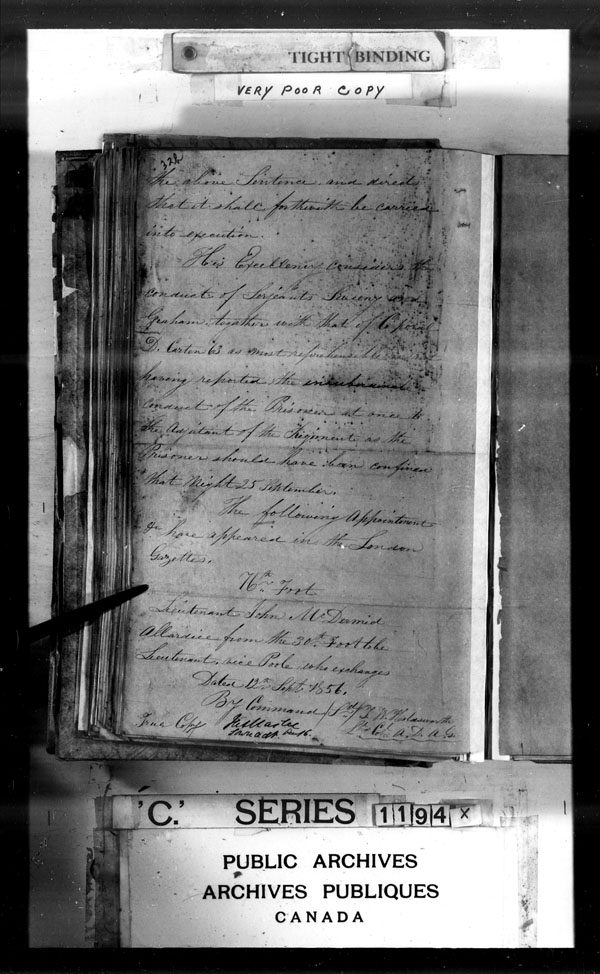 TIGHT BINDING
VERY POOR COPY
326
the above Sentence and direct
that it shall forthwith be carried
into execution.
His Excellency considers the
conduct of Serjeants and
Graham together with that of Coporal
D. as most reprehensible
having reported the
conduct of the Prisoner at once to
the Adjutant of the Regiment as the
Prisoner should have been confined
that Night 25 September.
The following Appointment
&c have appeared in the London
Gazettes.
76th Foot
Lieutenant John McDermid
Allardice from the 30th Foot to be
Lieutenant, vice Poole who exchanges
Dated 12th Sept. 1856.
By Command
Lt. Col. A. D. A. G.
True Copy
'C.' SERIES 1194 x
PUBLIC ARCHIVES
ARCHIVES PUBLIQUES
CANADA